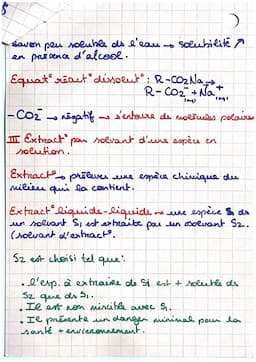 → savon peu soluble ds l'eau → solubilité ↗
en présence d'alcool.
Equat° réact° dissolut° : R-CO2Na →
R-CO2⁻ + Na⁺
(aq) (aq)
-CO2⁻ → négatif → s'entoure de molécules polaires
III Extract° par solvant d'une espèce en
solution.
Extract° → prélever une espèce chimique du
milieu qui la contient.
Extract° liquide-liquide → une espèce ds
un solvant S1 est extraite par un solvant S2.
(solvant d'extract°)
S2 est choisi tel que :
• l'esp. à extraire de S1 est + soluble ds
S2 que ds S1.
• Il est non miscible avec S1.
• Il présente un danger minimal pour la
santé + environnement.